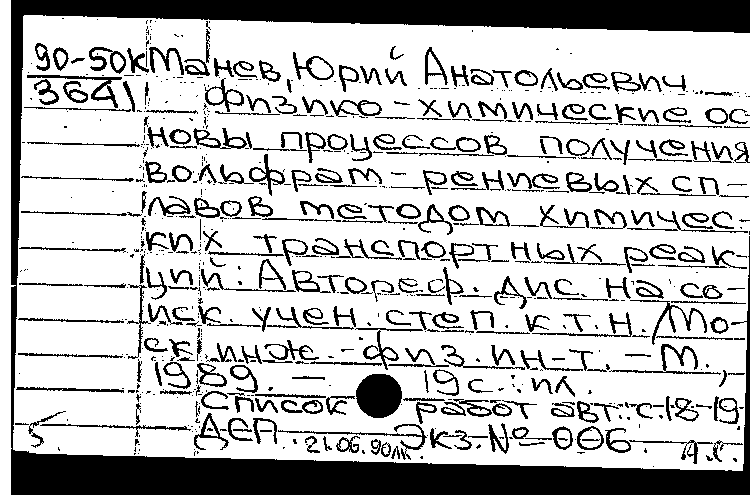 90-50к Манев, Юрий Анатольевич
3641 Физико-химические ос
новы процессов получения
вольфрам-рениевых сп-
лавов методом химичес-
ких транспортных реак-
ций: Автореф. дис. на со-
иск. учен. степ. к.т.н. /Мо-
ск. инж.-физ. ин-т. - М.,
1989. - 19 с.: ил.
Список работ авт.: с.18-19
5 ДЕП. 21.06.90 Экз. № 006. А.С.